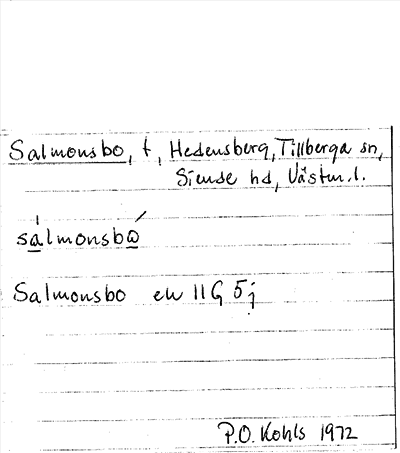 Salmonsbo, t, Hedensberg, Tillberga sn,
Siende hd, Västm.l.
salmonsbo
Salmonsbo ek 11G 5j
P.O. Kohls 1972